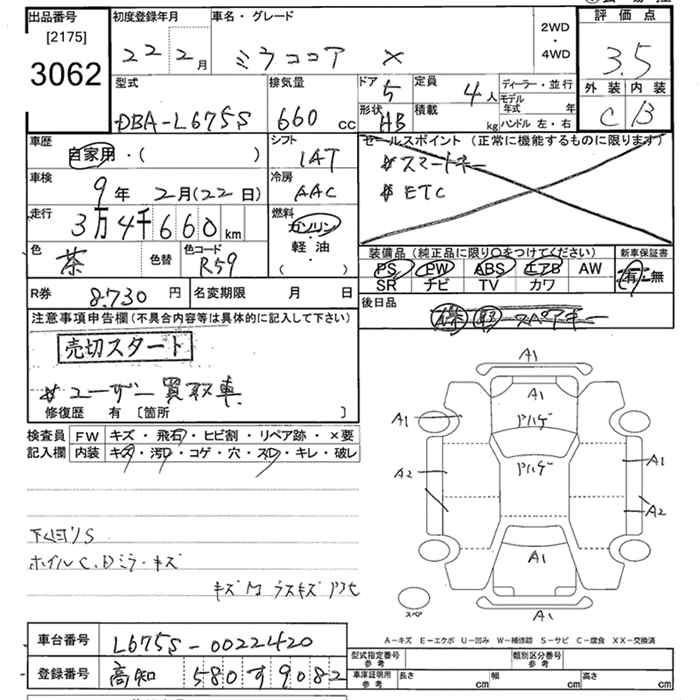 出品番号 初度登録年月 車名・グレード 2WD・4WD 評価点
[2175]
3062 22 2月 ミラココア X 3.5
型式 排気量 ドア 5 定員 4人 ディーラー・並行 外装 内装
モデル年式 年
DBA-L675S 660 cc 形状 HB 積載 kg ハンドル 左・右 C B
車歴 シフト セールスポイント (正常に機能するものに限ります)
自家用・( ) IAT *スマートキー
車検 冷房 *ETC
9年 2月(22日) AAC
走行 燃料
3万4千660km ガソリン・軽油
( )
色 茶 色替 色コード R59 装備品 (純正品に限り○をつけてください) 新車保証書
PS PW ABS エアB AW 有・無
SR ナビ TV カワ
R券 8.730円 名変期限 月 日 後日品
注意事項申告欄 (不具合内容等は具体的に記入して下さい) 保 取 スペアキー
売切スタート
*ユーザー買取車
修復歴 有 [箇所 ]
検査員記入欄 FW キズ・飛石・ヒビ割・リペア跡・×要
内装 キズ・汚レ・コゲ・穴・スレ・キレ・破レ
A1
A1
A1 ヤハゲ
ヤハゲ
A2 A1
A2
A1
下回りS
ホイルC,Dミラーキズ
スペア
A1
車台番号 L675S-0022420 A-キズ E-エクボ U-凹み W-補修跡 S-サビ C-腐食 XX-交換済
登録番号 高知 580 す 9082 型式指定番号 参考 類別区分番号 参考
車庫証明用 参考 長さ cm 幅 cm 高さ cm